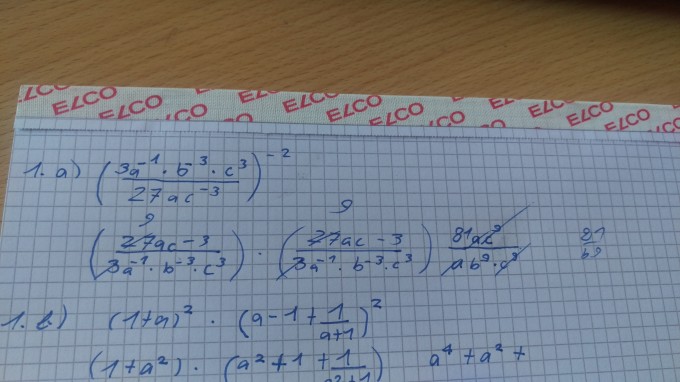 ELCO ELCO ELCO ELCO ELCO ELCO
ELCO ELCO ELCO ELCO
1. a) (3a⁻¹ · b⁻³ · c³ / 27ac⁻³)⁻²
9 9
(27ac-3 / 3a⁻¹ · b⁻³ · c³) · (27ac-3 / 3a⁻¹ · b⁻³ · c³) 81ac⁹ / ab⁹ · c⁹ 81 / b9
1. b) (1+a)² · (a-1+1/a+1)²
(1+a²) · (a²+1+1/a²+1) a⁴ + a² +